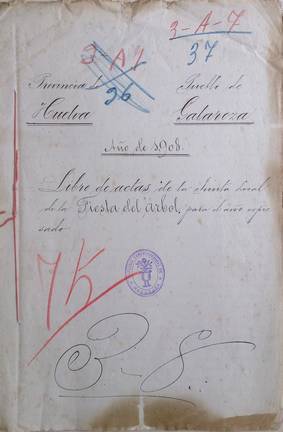 3-A-7
3 A1
37
36
Provincia de Pueblo de
Huelva Galaroza
Año de 1908.
Libro de actas de la Junta local
de la Fiesta del Árbol, para el año expre
sado
75
3-8